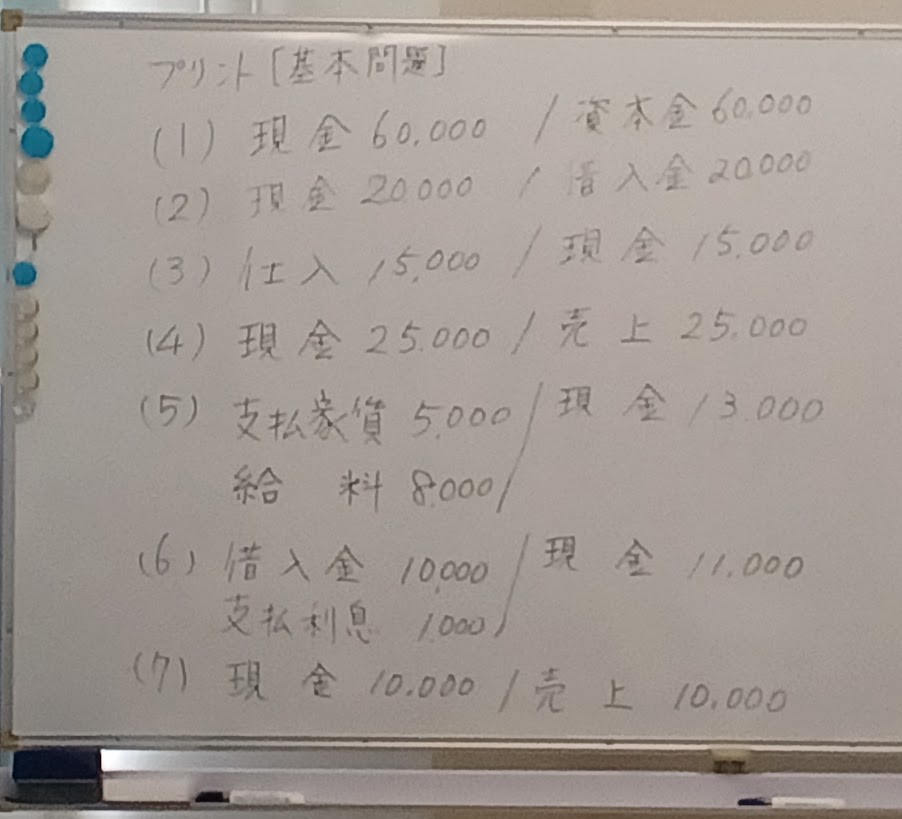 プリント[基本問題]
(1) 現金 60,000 / 資本金 60,000
(2) 現金 20,000 / 借入金 20,000
(3) 仕入 15,000 / 現金 15,000
(4) 現金 25,000 / 売上 25,000
(5) 支払家賃 5,000 / 現金 13,000
給料 8,000 /
(6) 借入金 10,000 / 現金 11,000
支払利息 1,000 /
(7) 現金 10,000 / 売上 10,000